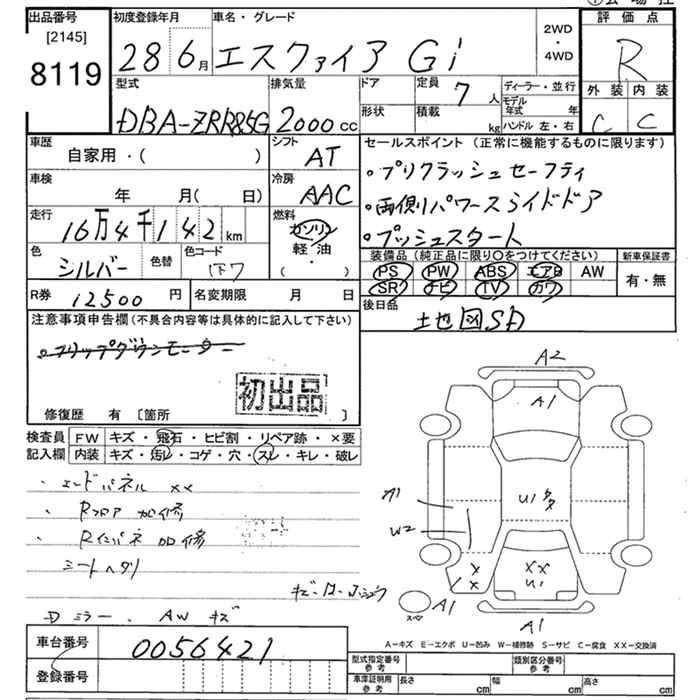 出品番号
[2145]
8119
初度登録年月
28 6月
車名・グレード
エスクァイア Gi
2WD
・
4WD
評価点
R
外装 内装
C C
型式
DBA-ZRR85G
排気量
2000cc
ドア
形状
定員 7人
積載 kg
ディーラー・並行
モデル年式 年
ハンドル 左・右
車歴
自家用・( )
車検
年 月( 日)
走行
16万4千142km
色
シルバー
色替
色コード
シフト
AT
冷房
AAC
燃料
ガソリン
軽油
( ・ )
R券 12500円
名変期限 月 日
セールスポイント (正常に機能するものに限ります)
・プリクラッシュセーフティ
・両側パワースライドドア
・プッシュスタート
装備品(純正品に限り〇をつけてください)
PS PW ABS エアB AW
SR ナビ TV カワ
新車保証書
有・無
後日品
地図SD
注意事項申告欄(不具合内容等は具体的に記入して下さい)
・フリップダウンモニター
初出品
修復歴 有 [箇所 ]
検査員記入欄
FW キズ・飛石・ヒビ割・リペア跡・×要
内装 キズ・汚レ・コゲ・穴・スレ・キレ・破レ
・エンドパネル ××
・Rフロア 加修
・Rインパネ 加修
シートヘタリ
Dミラー、AWキズ
A2
A1
U1
A1
W2
××
U1
×
×
A1
スペア
A1
A=キズ E=エクボ U=凹み W=補修跡 S=サビ C=腐食 XX=交換済
車台番号
0056421
登録番号
型式指定番号
参考
類別区分番号
参考
車庫証明用
参考
長さ cm
幅 cm
高さ cm